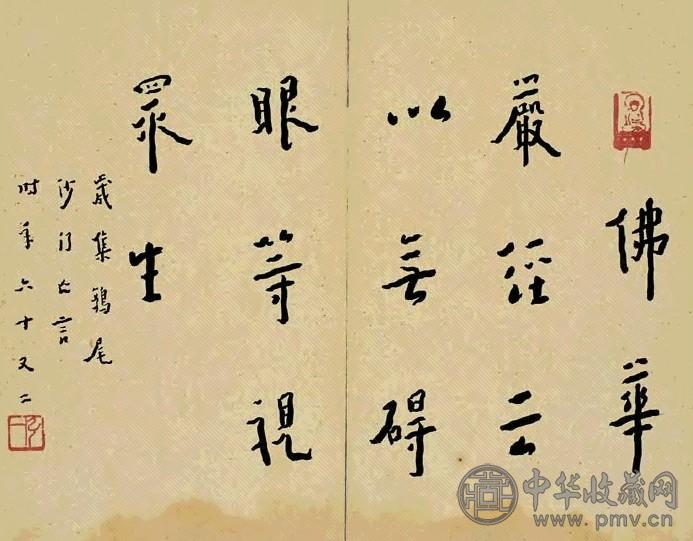 佛華
嚴經云
以無碍
眼等視
眾生
歲集鶉尾
沙门亡言
時年六十又二
中华收藏网
www.pmv.cn